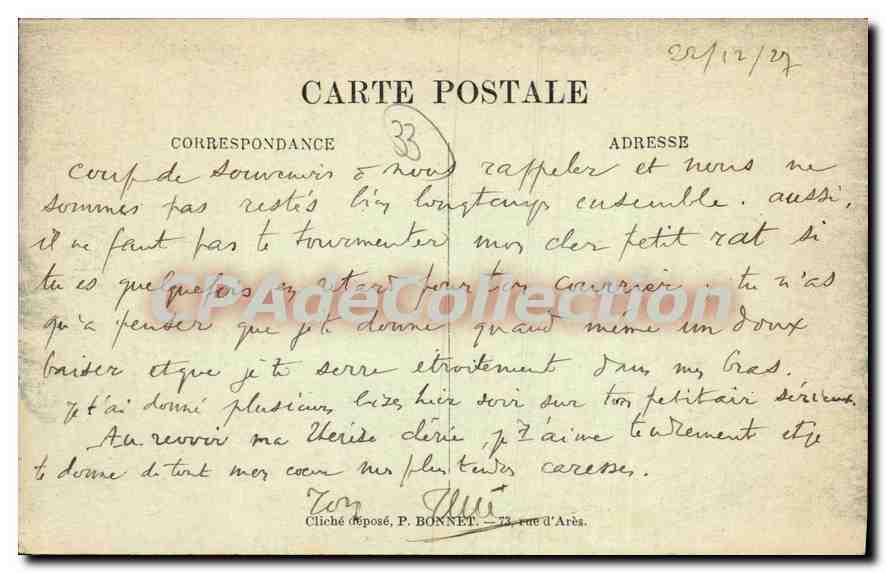 22/12/27
CARTE POSTALE
33
CORRESPONDANCE
ADRESSE
coup de souvenirs à nous rappeler et nous ne
sommes pas restés bien longtemps ensemble. aussi,
il ne faut pas te tourmenter mon cher petit rat si
tu es quelquefois en retard pour ton courrier. tu n'as
CPAdeCollection.com
qu'à penser que je te donne quand même un doux
baiser et que je te serre étroitement dans mes bras.
je t'ai donné plusieurs bises hier soir sur ton petit air sérieux.
Au revoir ma Thérèse chérie, je t'aime tendrement et je
te donne de tout mon coeur mes plus tendres caresses.
Ton
Cliché déposé, P. BONNET. — 73, rue d'Arès.